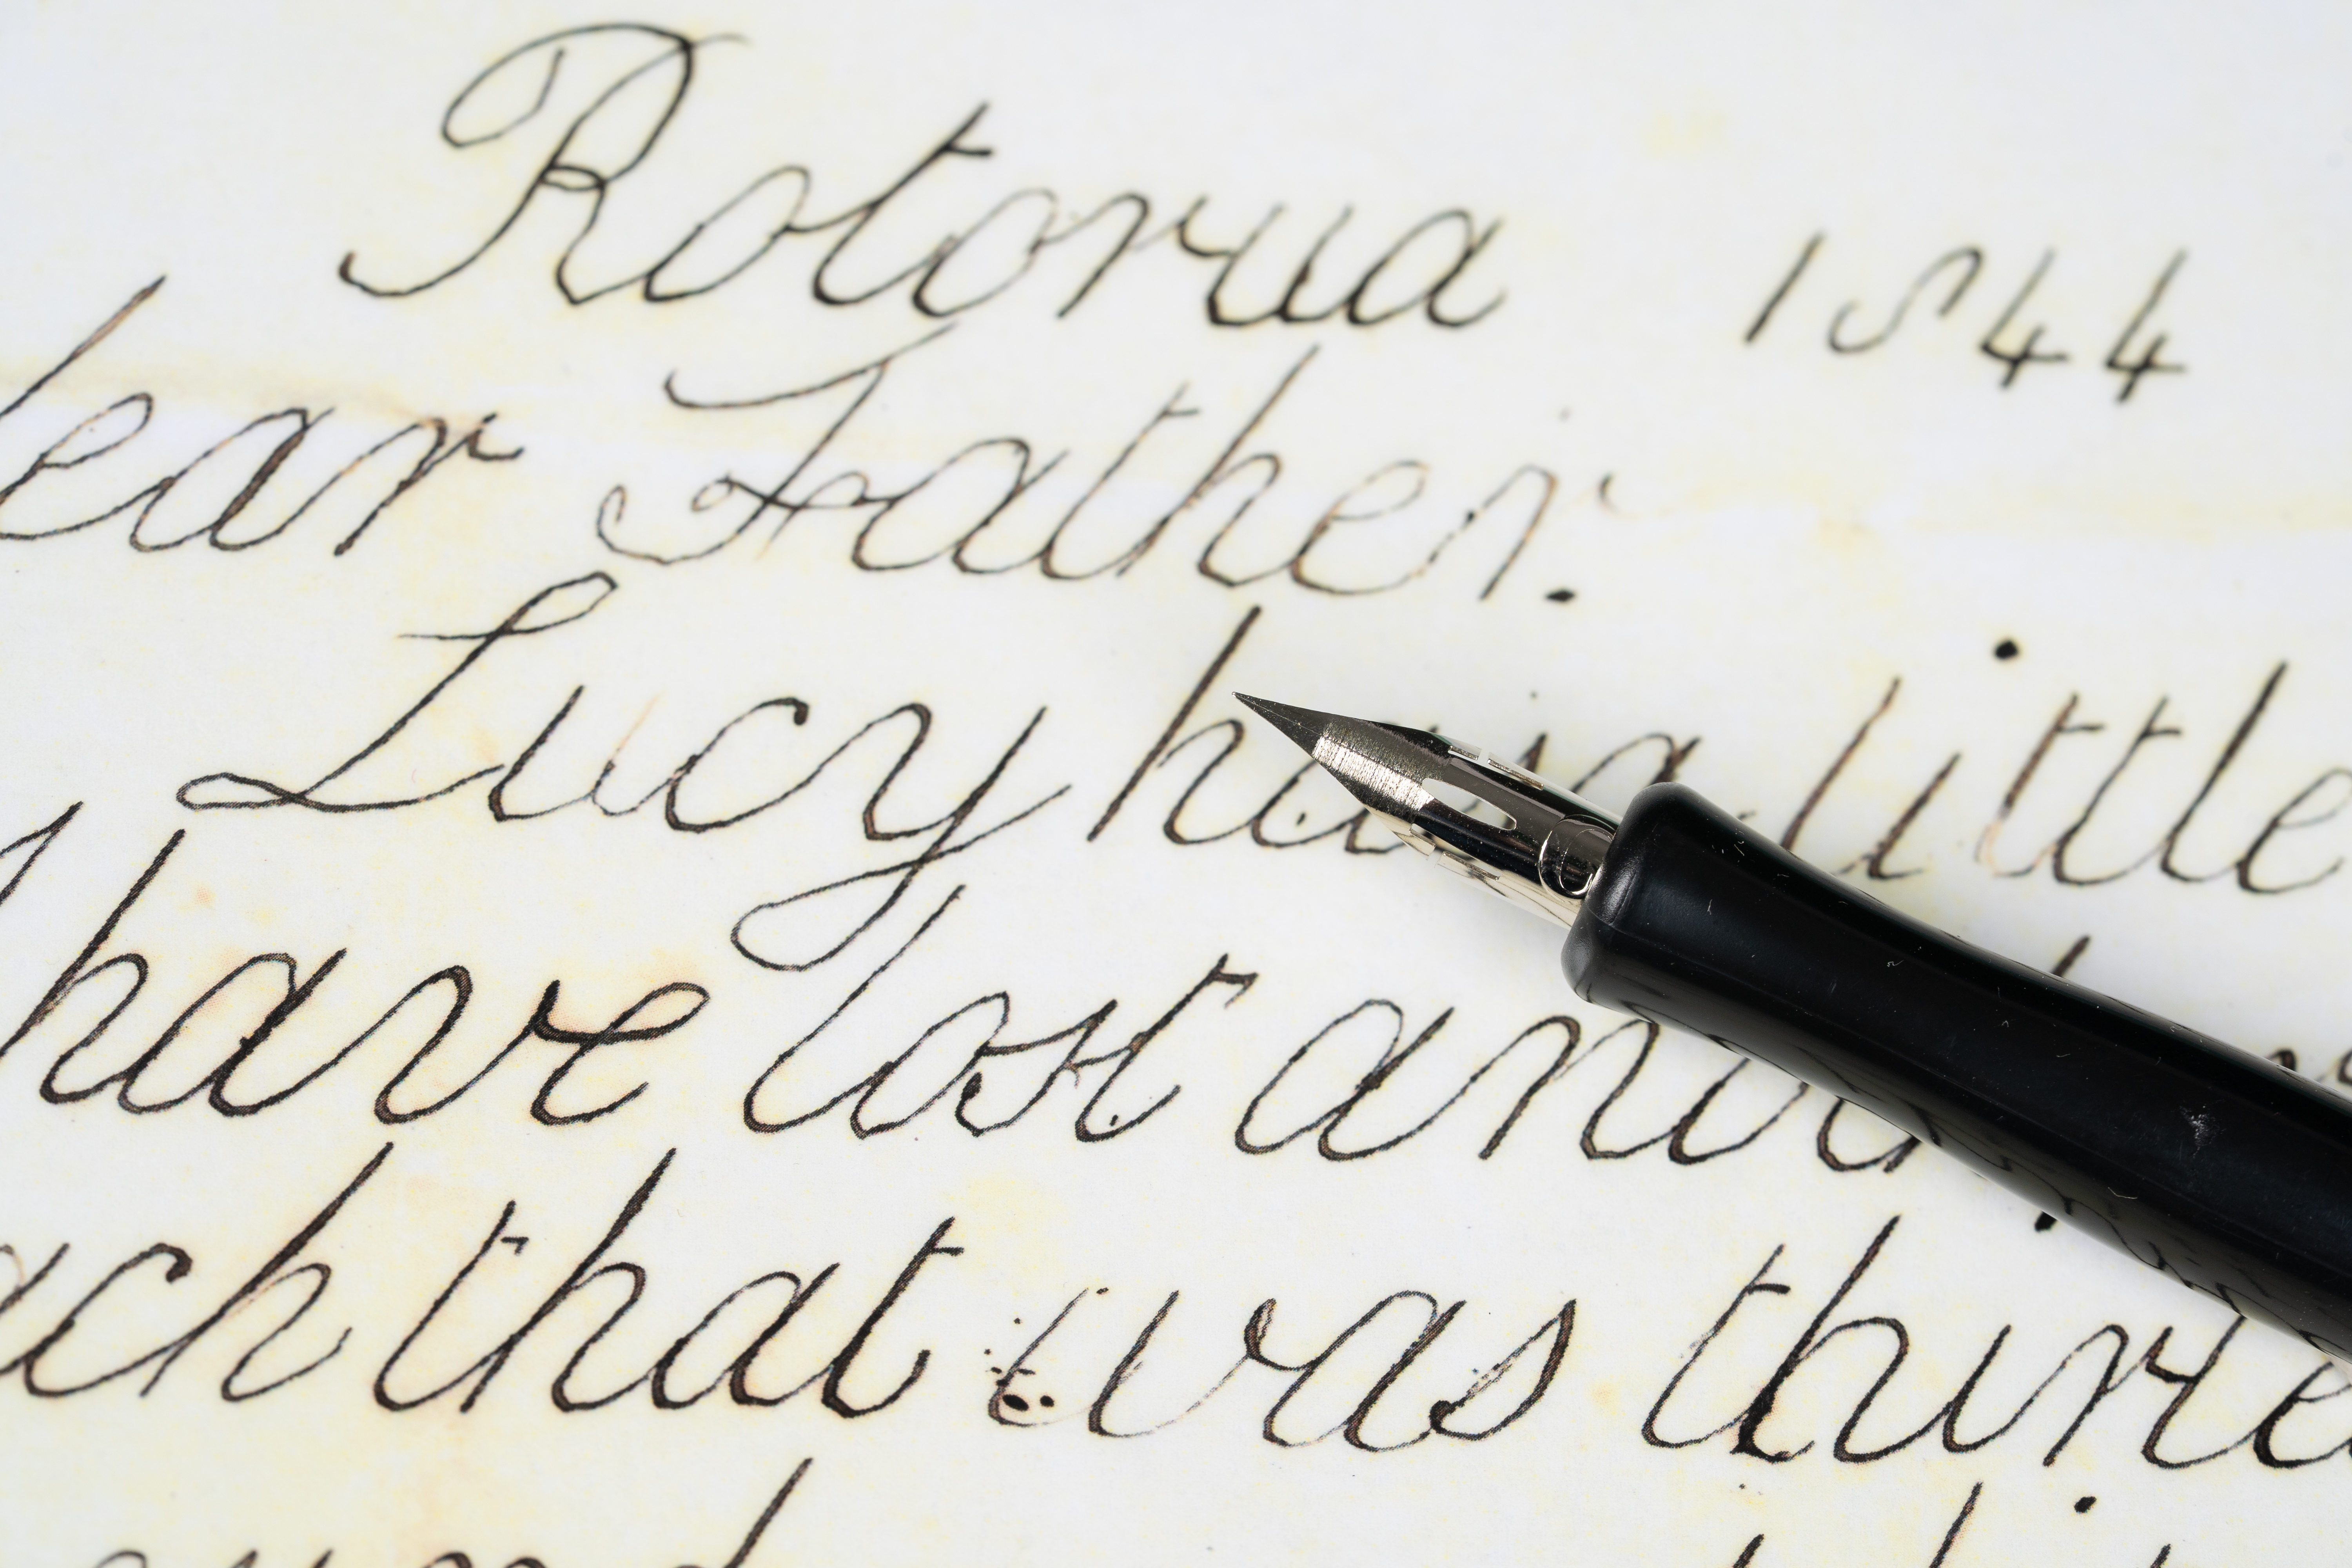 Rotorua 1844
ear Father.
Lucy has a little
have lost and
ach that was